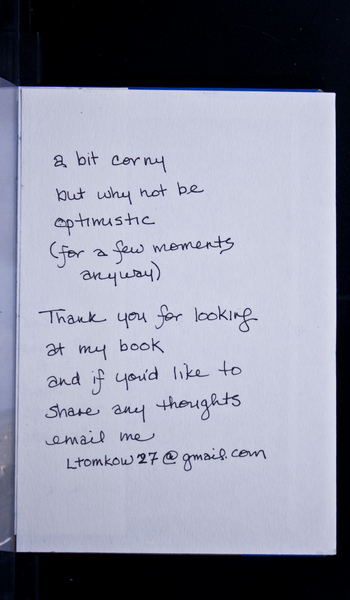 a bit corny
but why not be
optimistic
(for a few moments
anyway)
Thank you for looking
at my book
and if you'd like to
share any thoughts
email me
Ltomkow27@gmail.com